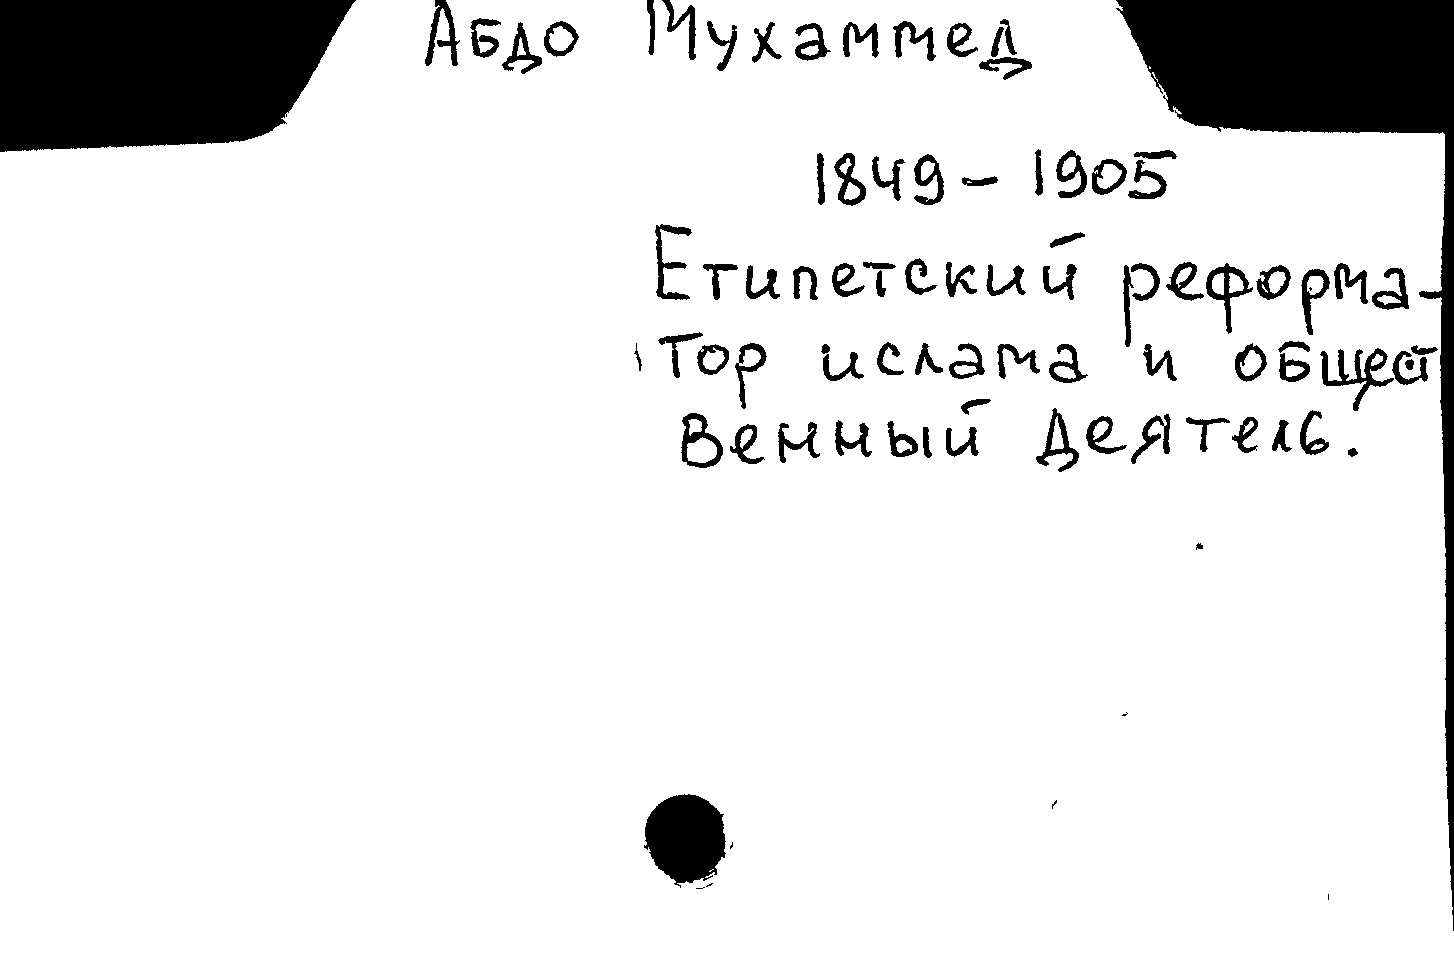 Абдо Мухаммед
1849 – 1905
Етипетский реформа-
тор ислама и общест
венный деятель.